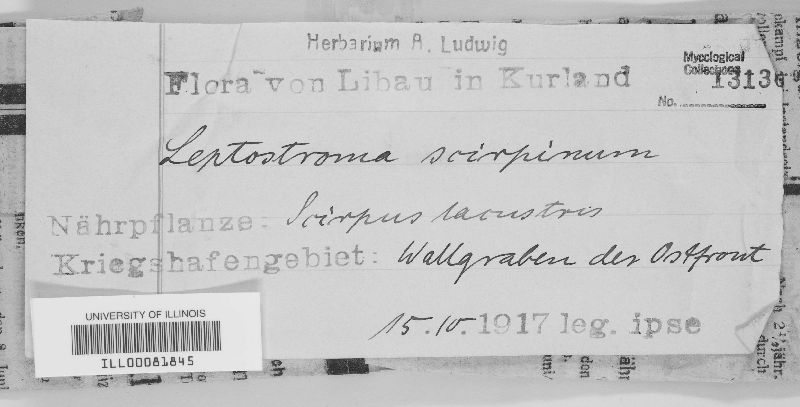 Herbarium A. Ludwig
Flora von Libau in Kurland
Mycological
Collections
No. 13136
Leptostroma scirpinum
Nährpflanze: Scirpus lacustris
Kriegshafengebiet: Wallgraben der Ostfront
15.10.1917 leg. ipse
UNIVERSITY OF ILLINOIS
ILL00081845